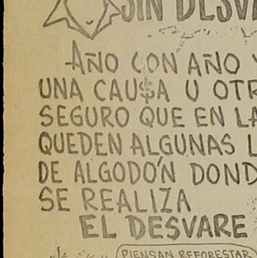 SIN DESVA
AÑO CON AÑO Y
UNA CAU$A U OTR
SEGURO QUE EN LA
QUEDEN ALGUNAS L
DE ALGODÓN DOND
SE REALIZA
EL DESVARE
PIENSAN REFORESTAR